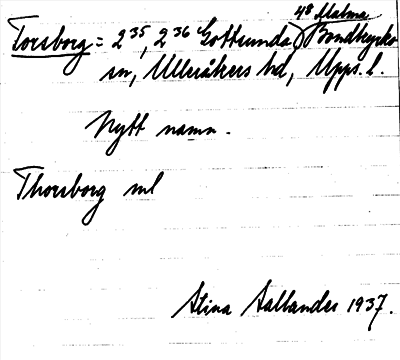 Torsborg = 2³⁵, 2³⁶ Gottsunda, 4⁸ Malma Bondkyrko
sn, Ulleråkers hd, Upps. l.
Nytt namn.
Thorsborg ml
Stina Sallander 1937.